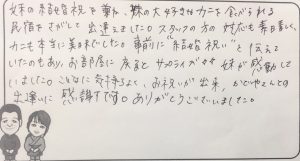 妹の結婚祝を兼ね、妹の大好きなカニを食べられる
民宿をさがして出逢えました。スタッフの方の対応も素晴しく、
カニも本当に美味でした。事前に"結婚祝い"と伝えて
いたのもあり、お部屋に戻るとサプライズが々 妹が感動して
いました。こんなに気持ちよく、お祝いが出来、かどやさんとの
出逢いに感謝です。ありがとうございました。